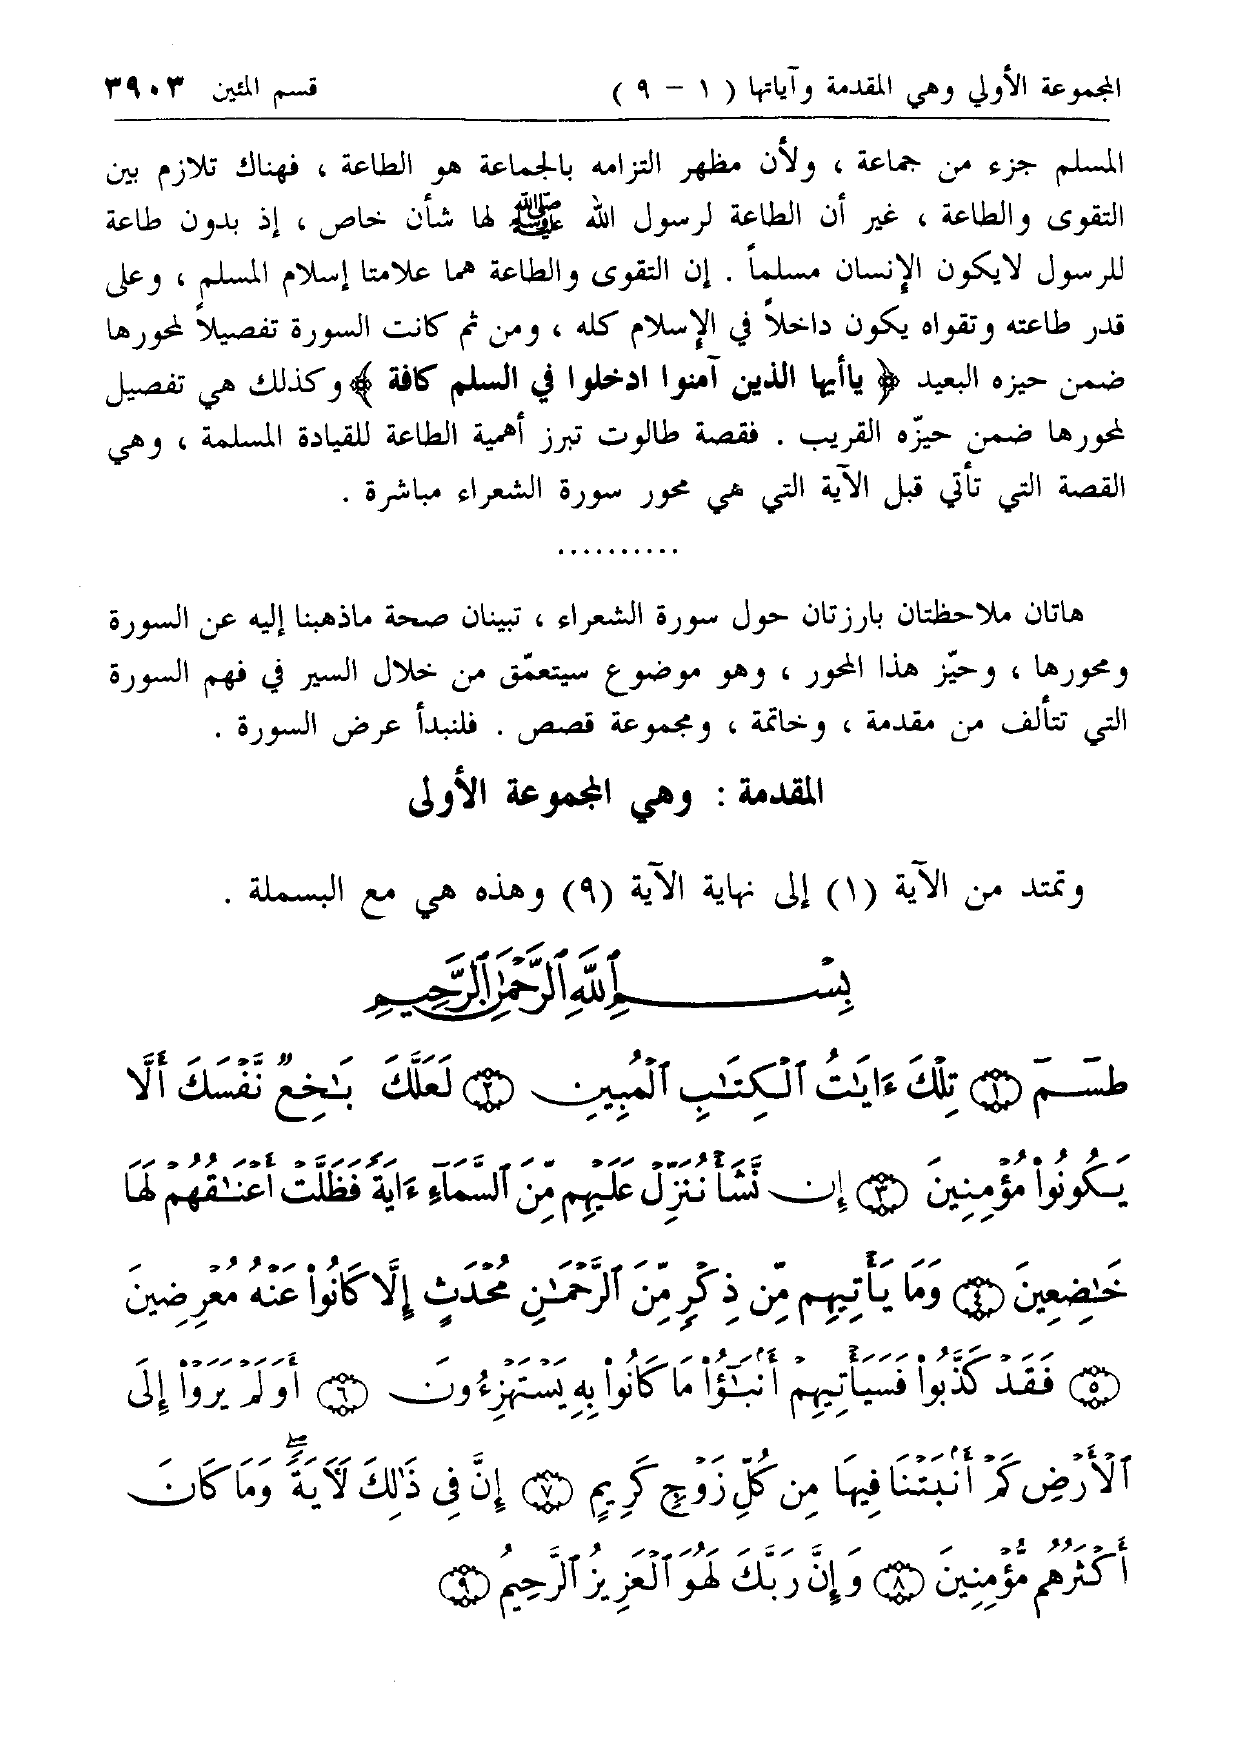 المجموعة الأولي وهي المقدمة وآياتها ( ١ – ٩ ) قسم المئين ٣٩٠٣
المسلم جزء من جماعة ، ولأن مظهر التزامه بالجماعة هو الطاعة ، فهناك تلازم بين
التقوى والطاعة ، غير أن الطاعة لرسول الله ﷺ لها شأن خاص ، إذ بدون طاعة
للرسول لايكون الإنسان مسلماً . إن التقوى والطاعة هما علامتا إسلام المسلم ، وعلى
قدر طاعته وتقواه يكون داخلاً في الإسلام كله ، ومن ثم كانت السورة تفصيلاً لمحورها
ضمن حيزه البعيد ﴿ ياأيها الذين آمنوا ادخلوا في السلم كافة ﴾ وكذلك هي تفصيل
لمحورها ضمن حيزّه القريب . فقصة طالوت تبرز أهمية الطاعة للقيادة المسلمة ، وهي
القصة التي تأتي قبل الآية التي هي محور سورة الشعراء مباشرة .
..........
هاتان ملاحظتان بارزتان حول سورة الشعراء ، تبينان صحة ماذهبنا إليه عن السورة
ومحورها ، وحيّز هذا المحور ، وهو موضوع سيتعمّق من خلال السير في فهم السورة
التي تتألف من مقدمة ، وخاتمة ، ومجموعة قصص . فلنبدأ عرض السورة .
المقدمة : وهي المجموعة الأولى
وتمتد من الآية (١) إلى نهاية الآية (٩) وهذه هي مع البسملة .
بِسْمِ ٱللَّهِ ٱلرَّحْمَٰنِ ٱلرَّحِيمِ
طسٓمٓ ۝١ تِلْكَ ءَايَٰتُ ٱلْكِتَٰبِ ٱلْمُبِينِ ۝٢ لَعَلَّكَ بَٰخِعٌ نَّفْسَكَ أَلَّا
يَكُونُوا۟ مُؤْمِنِينَ ۝٣ إِن نَّشَأْ نُنَزِّلْ عَلَيْهِم مِّنَ ٱلسَّمَآءِ ءَايَةً فَظَلَّتْ أَعْنَٰقُهُمْ لَهَا
خَٰضِعِينَ ۝٤ وَمَا يَأْتِيهِم مِّن ذِكْرٍ مِّنَ ٱلرَّحْمَٰنِ مُحْدَثٍ إِلَّا كَانُوا۟ عَنْهُ مُعْرِضِينَ
۝٥ فَقَدْ كَذَّبُوا۟ فَسَيَأْتِيهِمْ أَنۢبَٰٓؤُا۟ مَا كَانُوا۟ بِهِۦ يَسْتَهْزِءُونَ ۝٦ أَوَلَمْ يَرَوْا۟ إِلَى
ٱلْأَرْضِ كَمْ أَنۢبَتْنَا فِيهَا مِن كُلِّ زَوْجٍ كَرِيمٍ ۝٧ إِنَّ فِى ذَٰلِكَ لَءَايَةً ۖ وَمَا كَانَ
أَكْثَرُهُم مُّؤْمِنِينَ ۝٨ وَإِنَّ رَبَّكَ لَهُوَ ٱلْعَزِيزُ ٱلرَّحِيمُ ۝٩